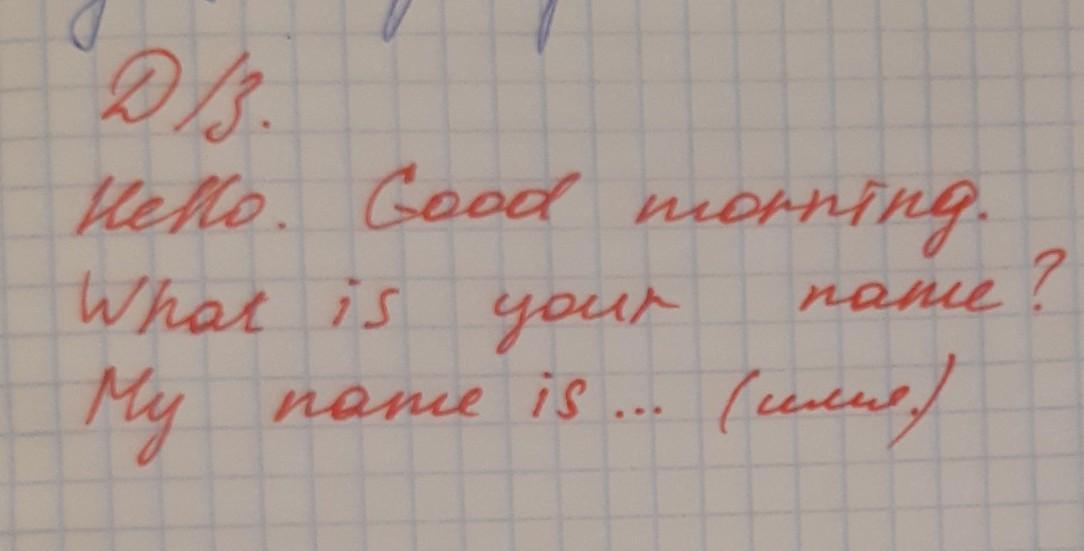 Д/з.
Hello. Good morning.
What is your name?
My name is... (имя.)